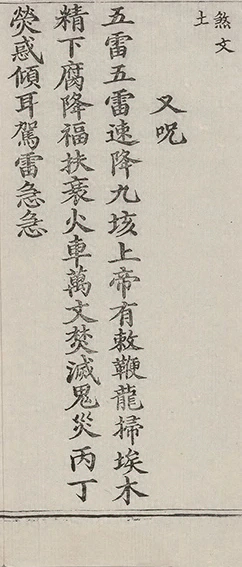 煞文
土
又呪
五雷五雷速降九垓上帝有敕鞭龍掃埃木
精下腐降福扶衰火車萬丈焚滅鬼災丙丁
熒惑傾耳駕雷急急